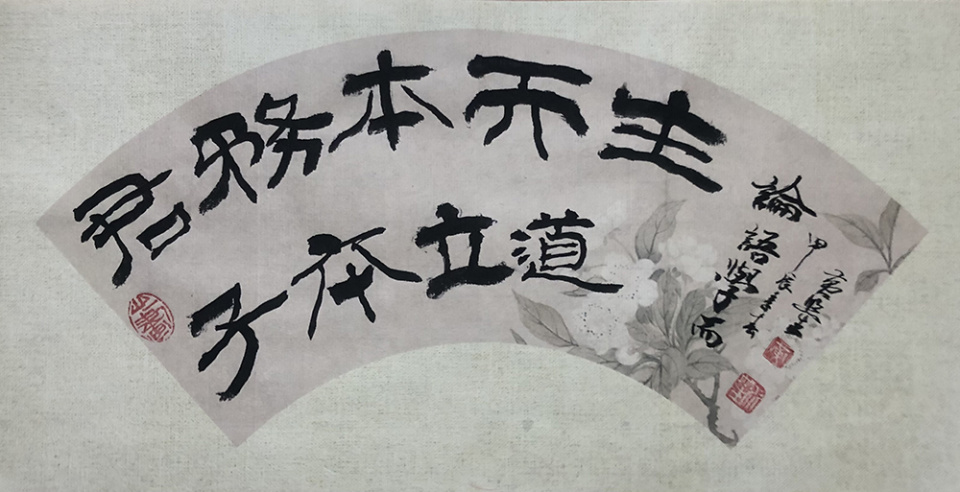 君子
務本
本立
而道
生
論語學而
甲辰